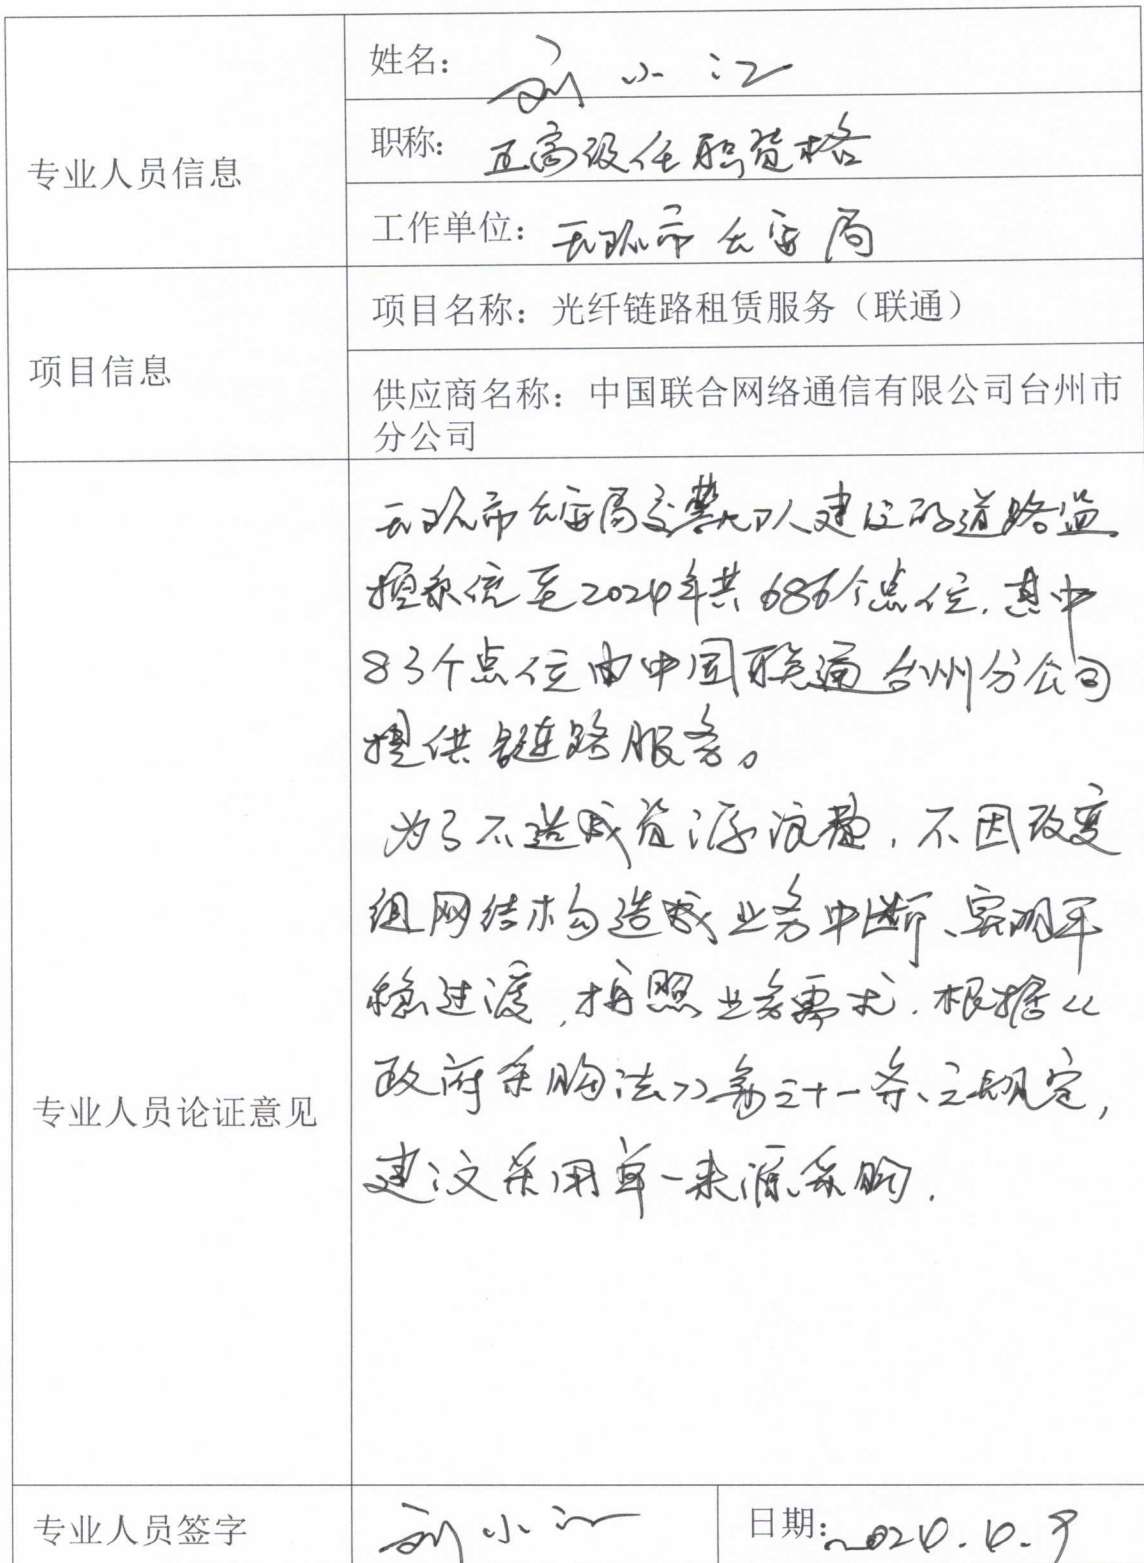 专业人员信息
姓名: 刘小江
职称: 正高级任职资格
工作单位: 玉环市公安局
项目信息
项目名称: 光纤链路租赁服务（联通）
供应商名称: 中国联合网络通信有限公司台州市
分公司
专业人员论证意见
玉环市公安局交警大队建设的道路监
控系统至2024年共686个点位,其中
83个点位由中国联通台州分公司
提供链路服务。
为了不造成资源浪费,不因改变
组网结构造成业务中断、实现平
稳过渡,按照业务需求.根据《
政府采购法》第三十一条之规定,
建议采用单一来源采购.
专业人员签字
刘小江
日期: 2024.